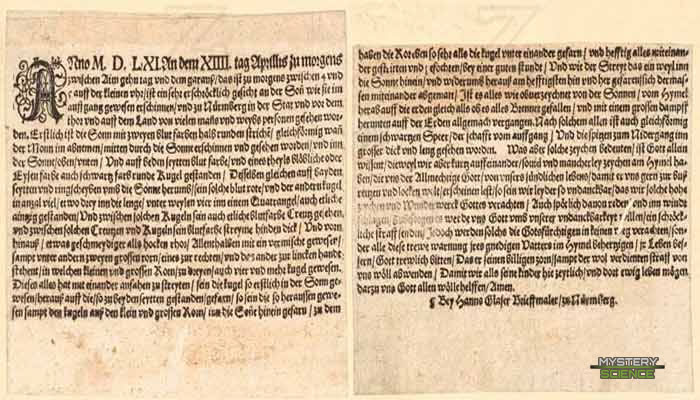 ANno M. D. LXI. An dem XIIII. tag Aprillis zu morgens
zwischen
auff der kleinen vhr / ist ein sehr erschröcklich gesicht an der Son wie sie im
auffgang gewesen erschinnen / vnd zu Nürmberg in der Stat vnd vor dem
thor vnd auff dem Land von vielen mans vnd weybs personen gesehen wor
den. Erstlich ist die Sonn mit zweyen blut farben halb runden strichē / gleichförmig wañ
der Monn im abnemen / mitten durch die Sonne erschinnen vnd gesehen worden / vnd inn
der Sonne / oben / vnten / Vnd auff beden seyten blut farbe / vnd eines theyls blöblicheoder
Eysen farbe auch schwartz farb runde Kugel gestanden / Desselben gleichen auff bayden
seyten vnd ring scheyben vmb die Sonne herumb / sein solche blut rote / vnd der andern kugel
in anzal viel / etwo drey inn die lenge / vnter weylen vier inn einem Quatrangel / auch etliche
ainzig gestanden / Vnd zwischen solchen Kugeln sein auch etliche blutfarbe Creutz gesehen,
vnd zwischen solchen Creutzen vnd Kugeln sein blutfarbe streyme hinden dick / Vnd vorn
hinauß / etwas geschmeydiger alls hocken rhor / Allenthalben mit ein vermischt gewesen /
sampt vnter andern zweyen grossen rorn / eines zur rechten / vnd das ander zur lincken handt
stehent / in welchen kleinen vnd grossen Rorn / zu dreyen / auch vier vnd mehr kugel gewesen.
Dieses alles hat mit einander anfahen zu streyten / sein die kugel so erstlich in der Sonn ge-
wesen / herauß auff die / so zu beyden seytten gestanden / gefarn / so sein die so heraussen gewe-
sen sampt den kugeln auß den klein vnd grossen Rorn / inn die Sonē hinein gefarn / zu dem
haben die Roreben so sehr alls die kugel vnter einander gefarn / vnd hefftig alles miteinan-
der gestritten vnd gefochten / bey einer guten stunde / Vnd wie der Streyt das ein weyl inn
die Sonn hinein / vnd widerumb herauß am hefftigsten hin vnd her gefaren / sich der mas-
sen miteinander abgematt / Ist es alles wie obuerzeychnet von der Sonnen / vom Hymel
herab auff die erden gleich als ob es alles Brennet gefallen / vnd mit einem grossen dampff
herunten auff der Erden allgemach vergangen. Nach solchem alles ist auch gleichförmig
einem schwartzen Speer / der schafft vom auffgang / Vnd die spitzen zum Nidergang inn
grosser dick vnd leng gesehen worden. Was aber solche zeychen bedeuten / ist Gott allein
wissent / die weyl wir aber kurtz auff einander / souil vnd mancherley zeychen am Hymel ha-
ben / die vns der Allmechtige Gott / von vnsers sündlichen lebens / damit er vns gern zur buß
reytzen vnd locken wolt / erscheinen lest / so sein wir leyder so vndanckbar / das wir solche hohe
zeychen vnd Wunderwerck Gottes verachten / Auch spötlich dauon reden / vnd inn windt
schlagen, zubesorgen es werde vns Gott vmb vnserer vndanckbarkeyt Allen / ein schröck-
liche straff senden / Jedoch werden solchs die Gotsförchtigen in keinen weg verachten / son-
der alle diese trewe warnung jres gnedigen Vatters im Hymel behertzigen / jr Leben bes-
sern / Gott trewlich bitten / Das er seinen billigen zorn / sampt der wol verdienten straff von
vns wöll abwenden / Damit wir alls seine kinder hie zeytlich / vnd dort ewig leben mögen
darzu vns Gott allen wölle helffen / Amen.
¶ Bey Hanns Glaser Brieffmaler / zu Nürmberg.
MYSTERY
SCIENCE